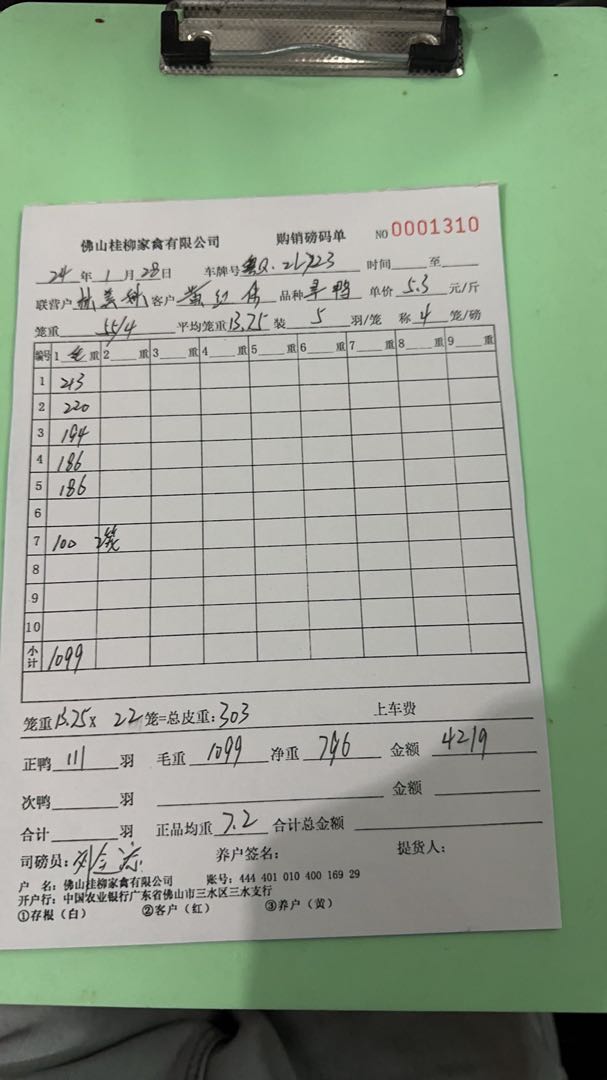 佛山桂柳家禽有限公司 购销磅码单 NO 0001310
24 年 1 月 28 日 车牌号 粤Q·21723 时间 至
联营户 客户 黄红伟 品种 旱鸭 单价 5.3 元/斤
笼重 55/4 平均笼重 13.75 装 5 羽/笼 称 4 笼/磅
编号 1 毛 重 2 重 3 重 4 重 5 重 6 重 7 重 8 重 9 重
1 213
2 220
3 194
4 186
5 186
6
7 100 2笼
8
9
10
小计 1099
笼重 13.75 × 22 笼=总皮重: 303 上车费
正鸭 111 羽 毛重 1099 净重 796 金额 4219
次鸭 羽 金额
合计 羽 正品均重 7.2 合计总金额
司磅员: 养户签名: 提货人:
户 名: 佛山桂柳家禽有限公司 账号: 444 401 010 400 169 29
开户行: 中国农业银行广东省佛山市三水区三水支行
①存根（白） ②客户（红） ③养户（黄）